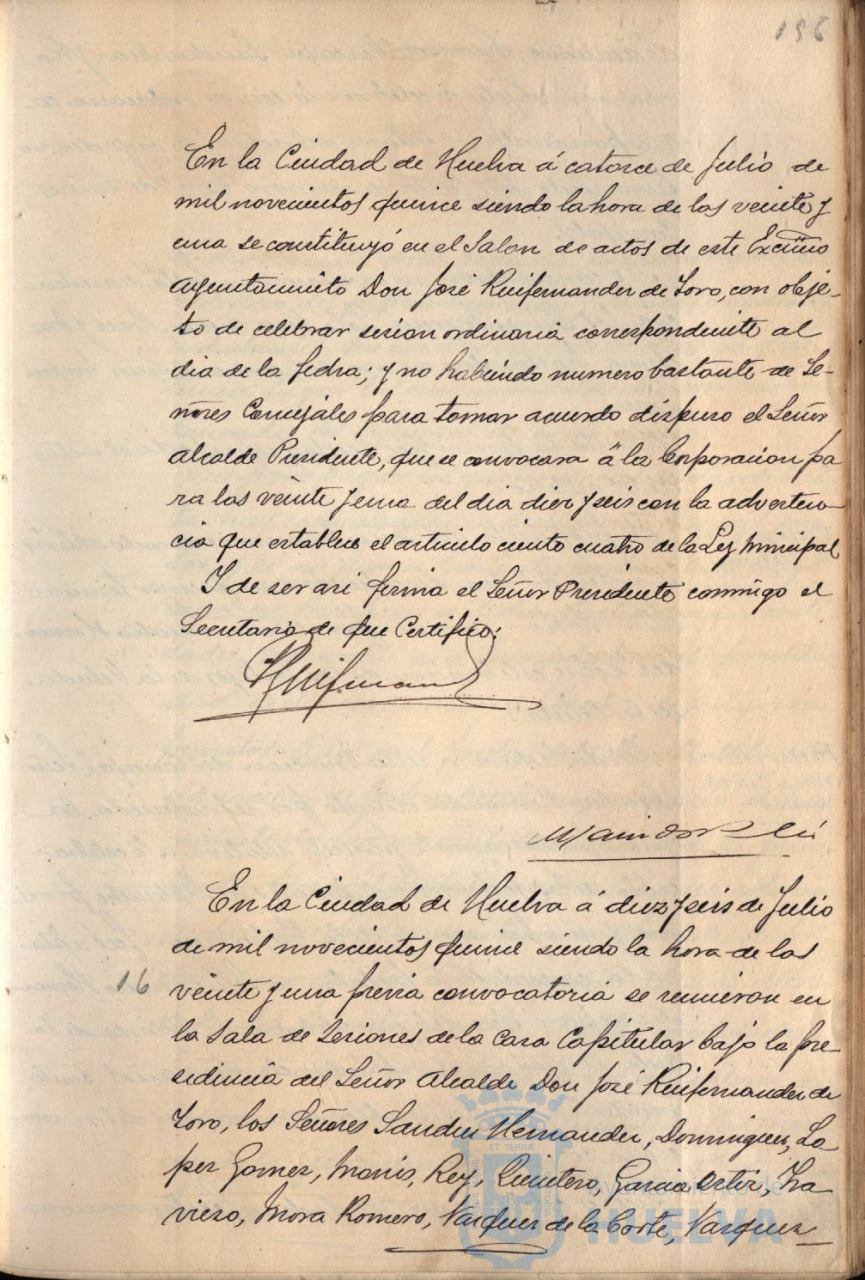 196
En la Ciudad de Huelva á catorce de Julio de
mil novecientos quince siendo la hora de las veinte y
una se constituyó en el Salon de actos de este Excmo
Ayuntamiento Don José Ruifernandez de Toro, con obje-
to de celebrar sesion ordinaria correspondiente al
dia de la fecha; y no habiendo numero bastante de Se-
ñores Concejáles para tomar acuerdo dispuso el Señor
Alcalde Presidente, que se convocara á la Corporacion pa
ra las veinte y una del dia diez y seis con la adverten-
cia que establece el articulo ciento cuatro de la Ley Municipal
Y de ser asi firma el Señor Presidente conmigo el
Secretario de que Certifico:
En la Ciudad de Huelva á diez y seis de Julio
de mil novecientos quince siendo la hora de las
16
veinte y una previa convocatoria se reunieron en
la Sala de Sesiones de la Casa Capitular bajo la pre-
sidencia del Señor Alcalde Don José Ruifernandez de
Toro, los Señores Sanchez Hernandez, Dominguez, Lo
pez Gomez, Monis, Rey, Quintero, Garcia Ortiz, Tra
vieso, Mora Romero, Vazquez de la Corte, Vazquez
ET TERRÆ
Ayuntamiento de
HUELVA